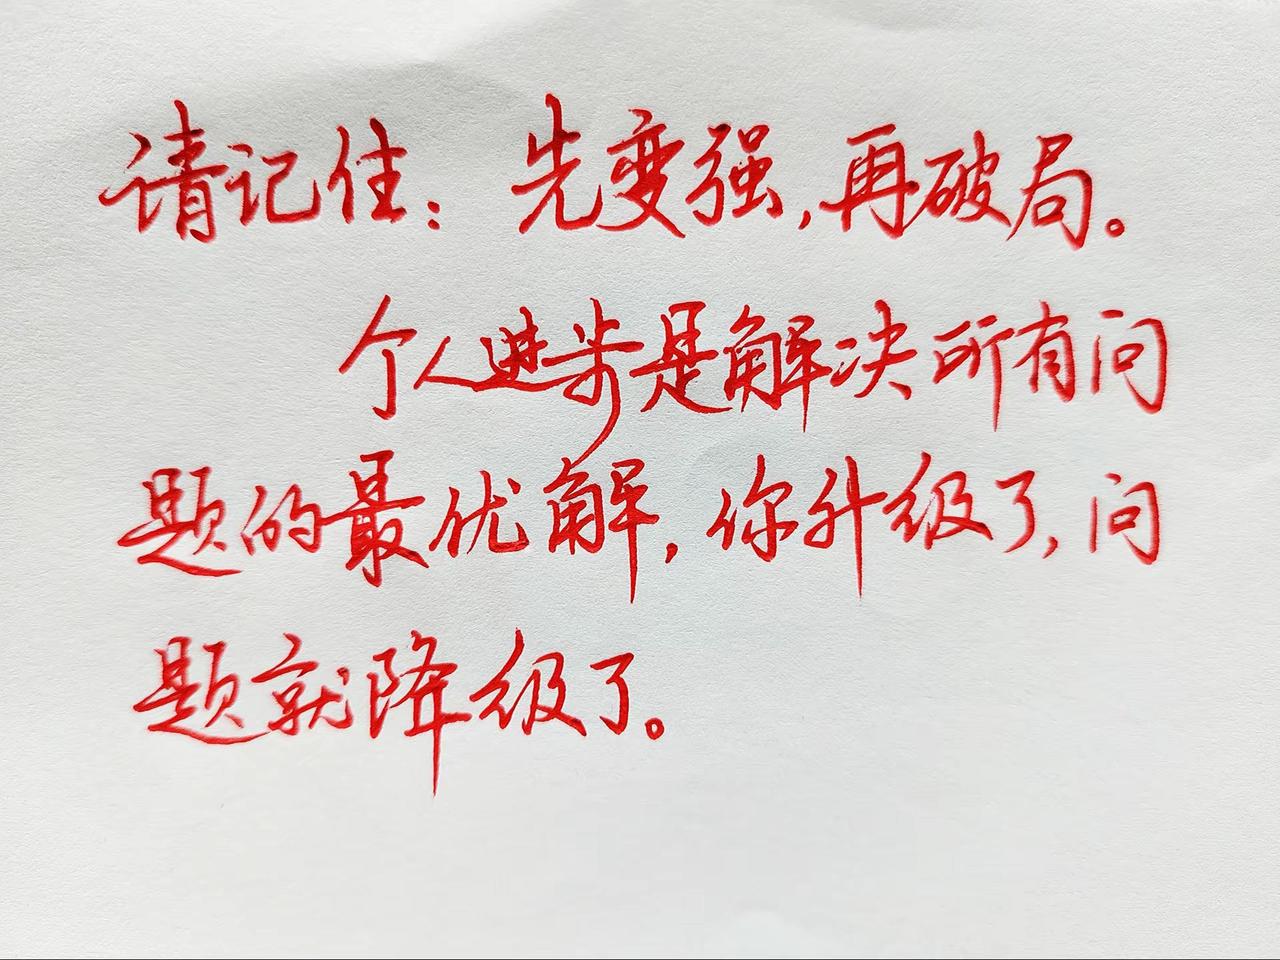 请记住：先变强，再破局。
个人进步是解决所有问
题的最优解，你升级了，问
题就降级了。